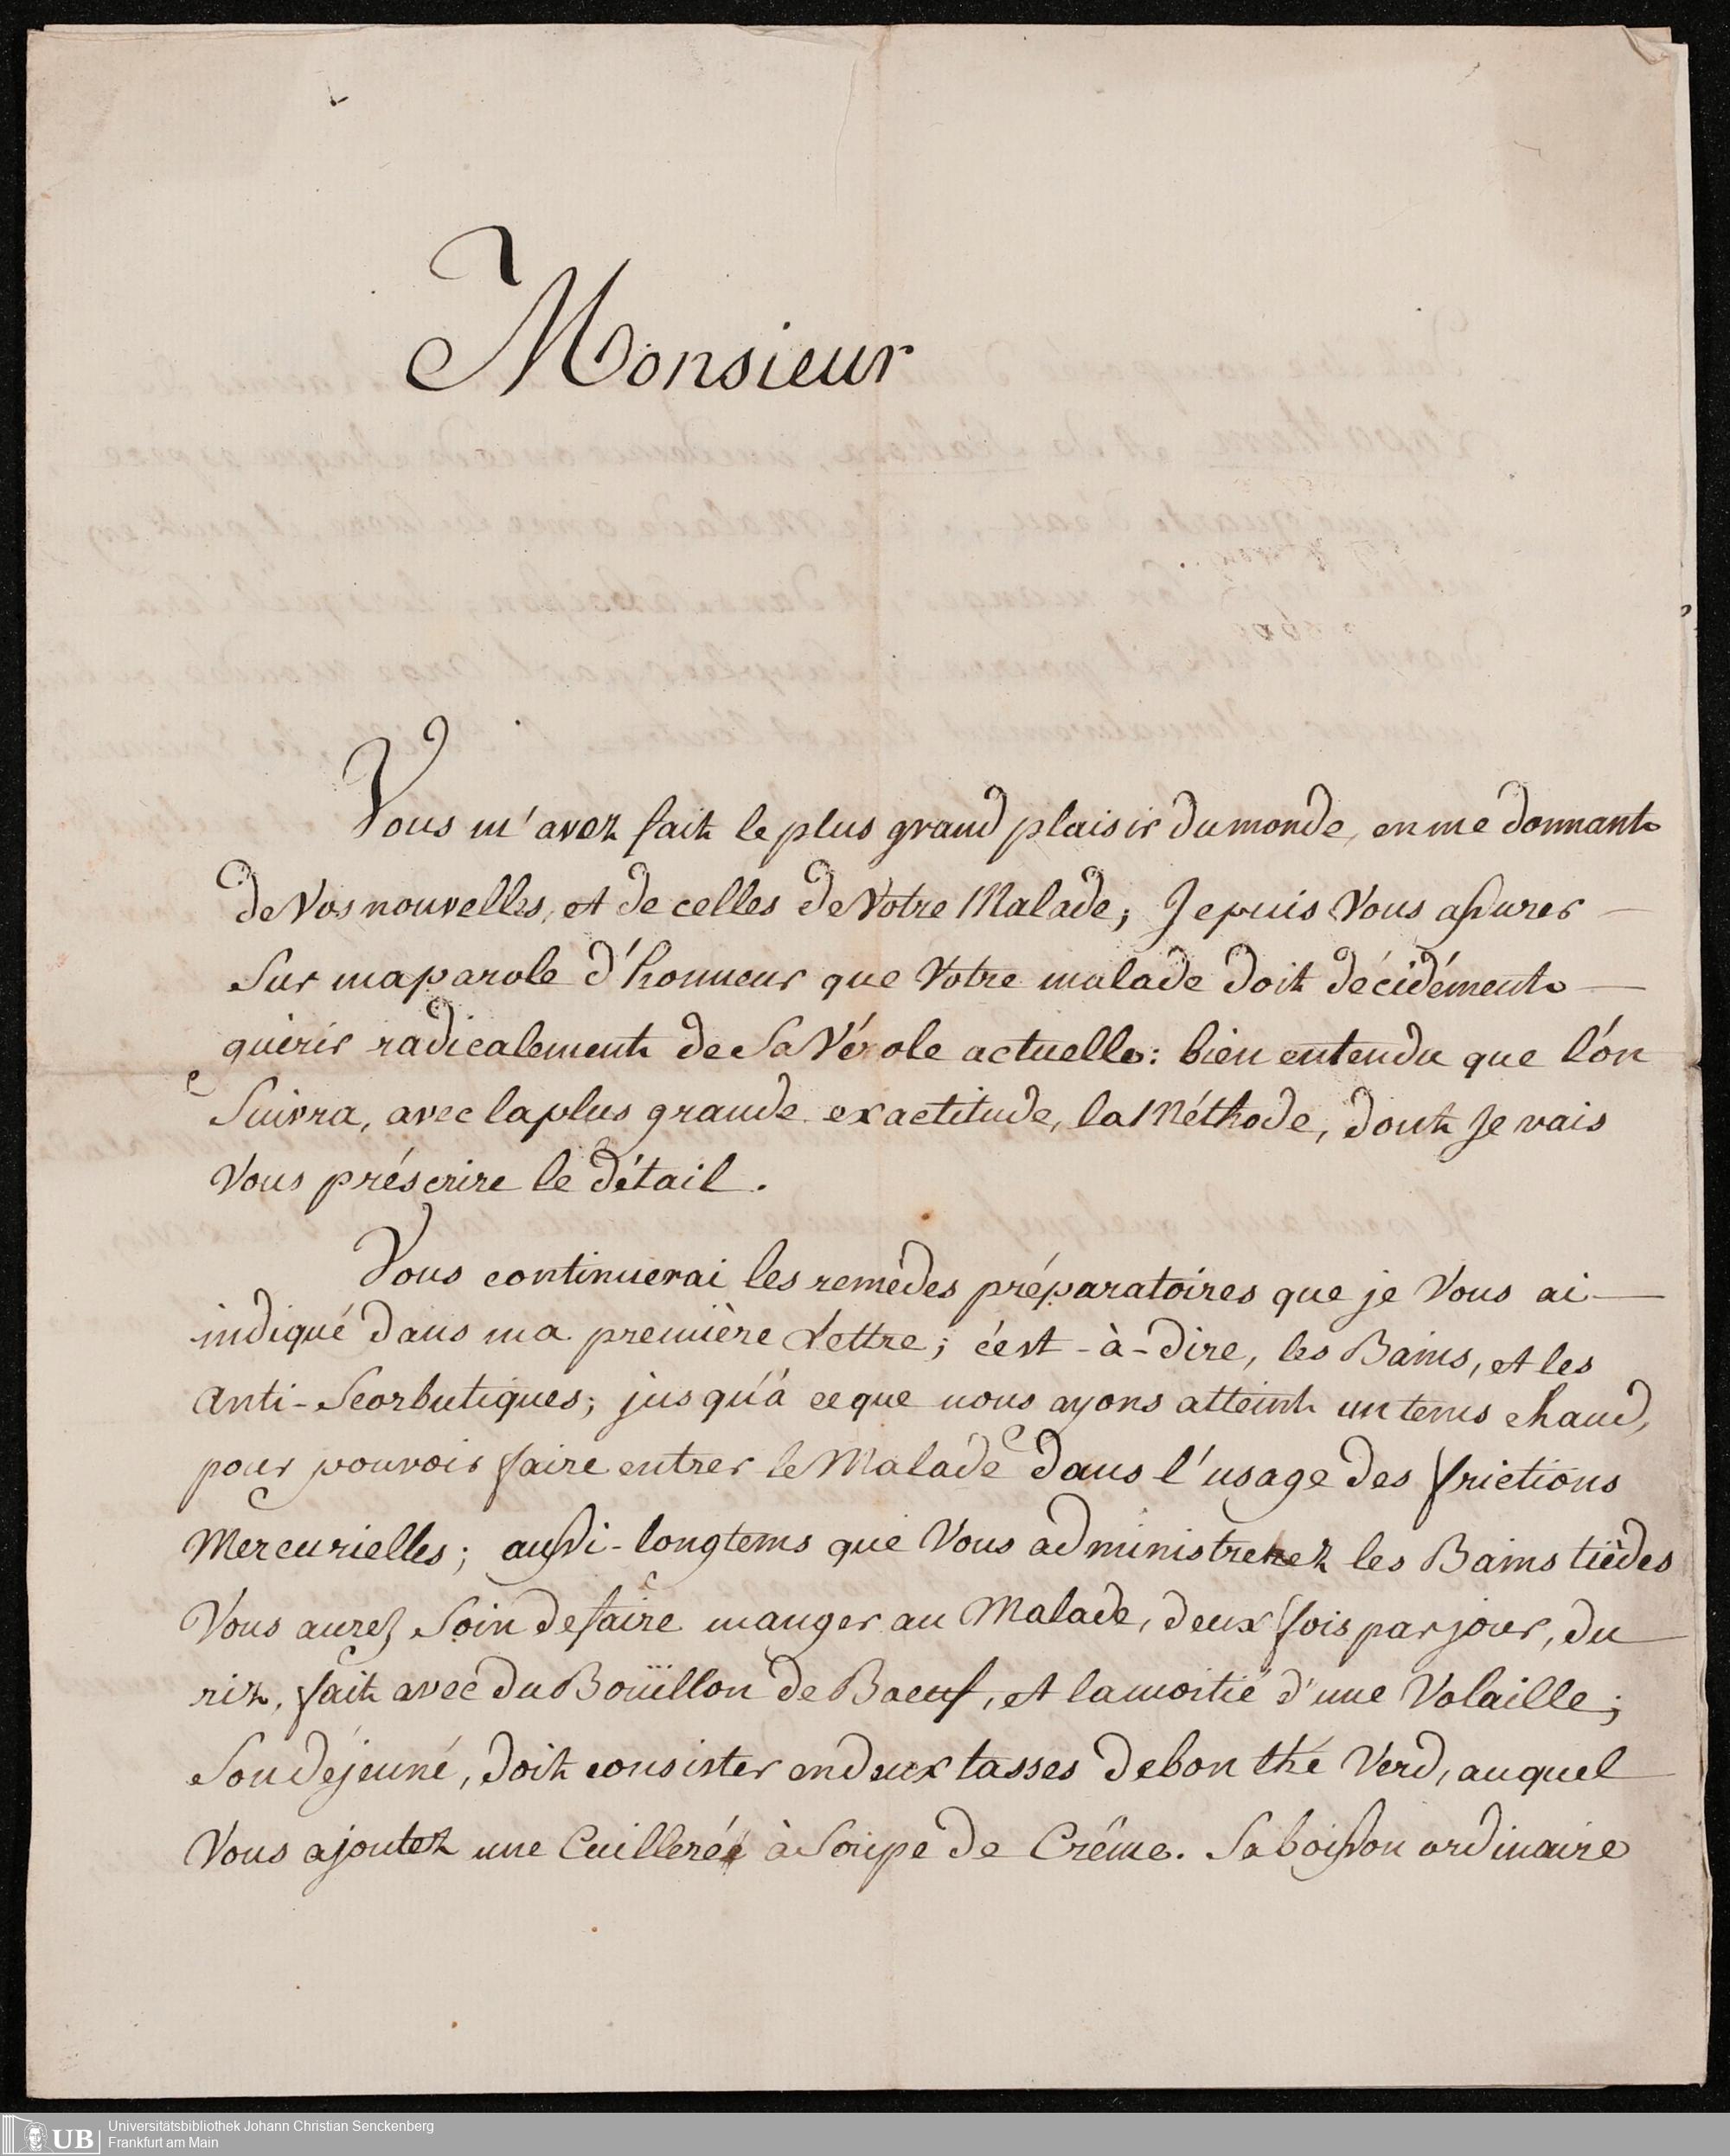 Monsieur
Vous m'avez fait le plus grand plaisir du monde, en me donnant
de Vos nouvelles, et de celles de Votre Malade; Je puis Vous assurer
Sur ma parole d'honneur que Votre malade doit décidément
guérir radicalement de Sa Vérole actuelle: bien entendu que l'on
Suivra, avec la plus grande exactitude, la Méthode, dont Je vais
Vous préscrire le détail.
Vous continuerai les remèdes préparatoires que je Vous ai
indiqué dans ma première Lettre; c'est-à-dire, les Bains, et les
Anti-Scorbutiques; jusqu'à ce que nous ayons atteint un tems chaud,
pour pouvoir faire entrer le Malade dans l'usage des frictions
Mercurielles; aussi-longtems que Vous administrerez les Bains tièdes
Vous aurez Soin de faire manger au Malade, deux fois par jour, du
riz, fait avec du Boüillon de Boeuf, et la moitié d'une Volaille;
Son déjeuné, doit consister en deux tasses de bon thé Verd, auquel
Vous ajoutez une Cuillerée à Soupe de Crême. Sa boisson ordinaire
UB
Universitätsbibliothek Johann Christian Senckenberg
Frankfurt am Main